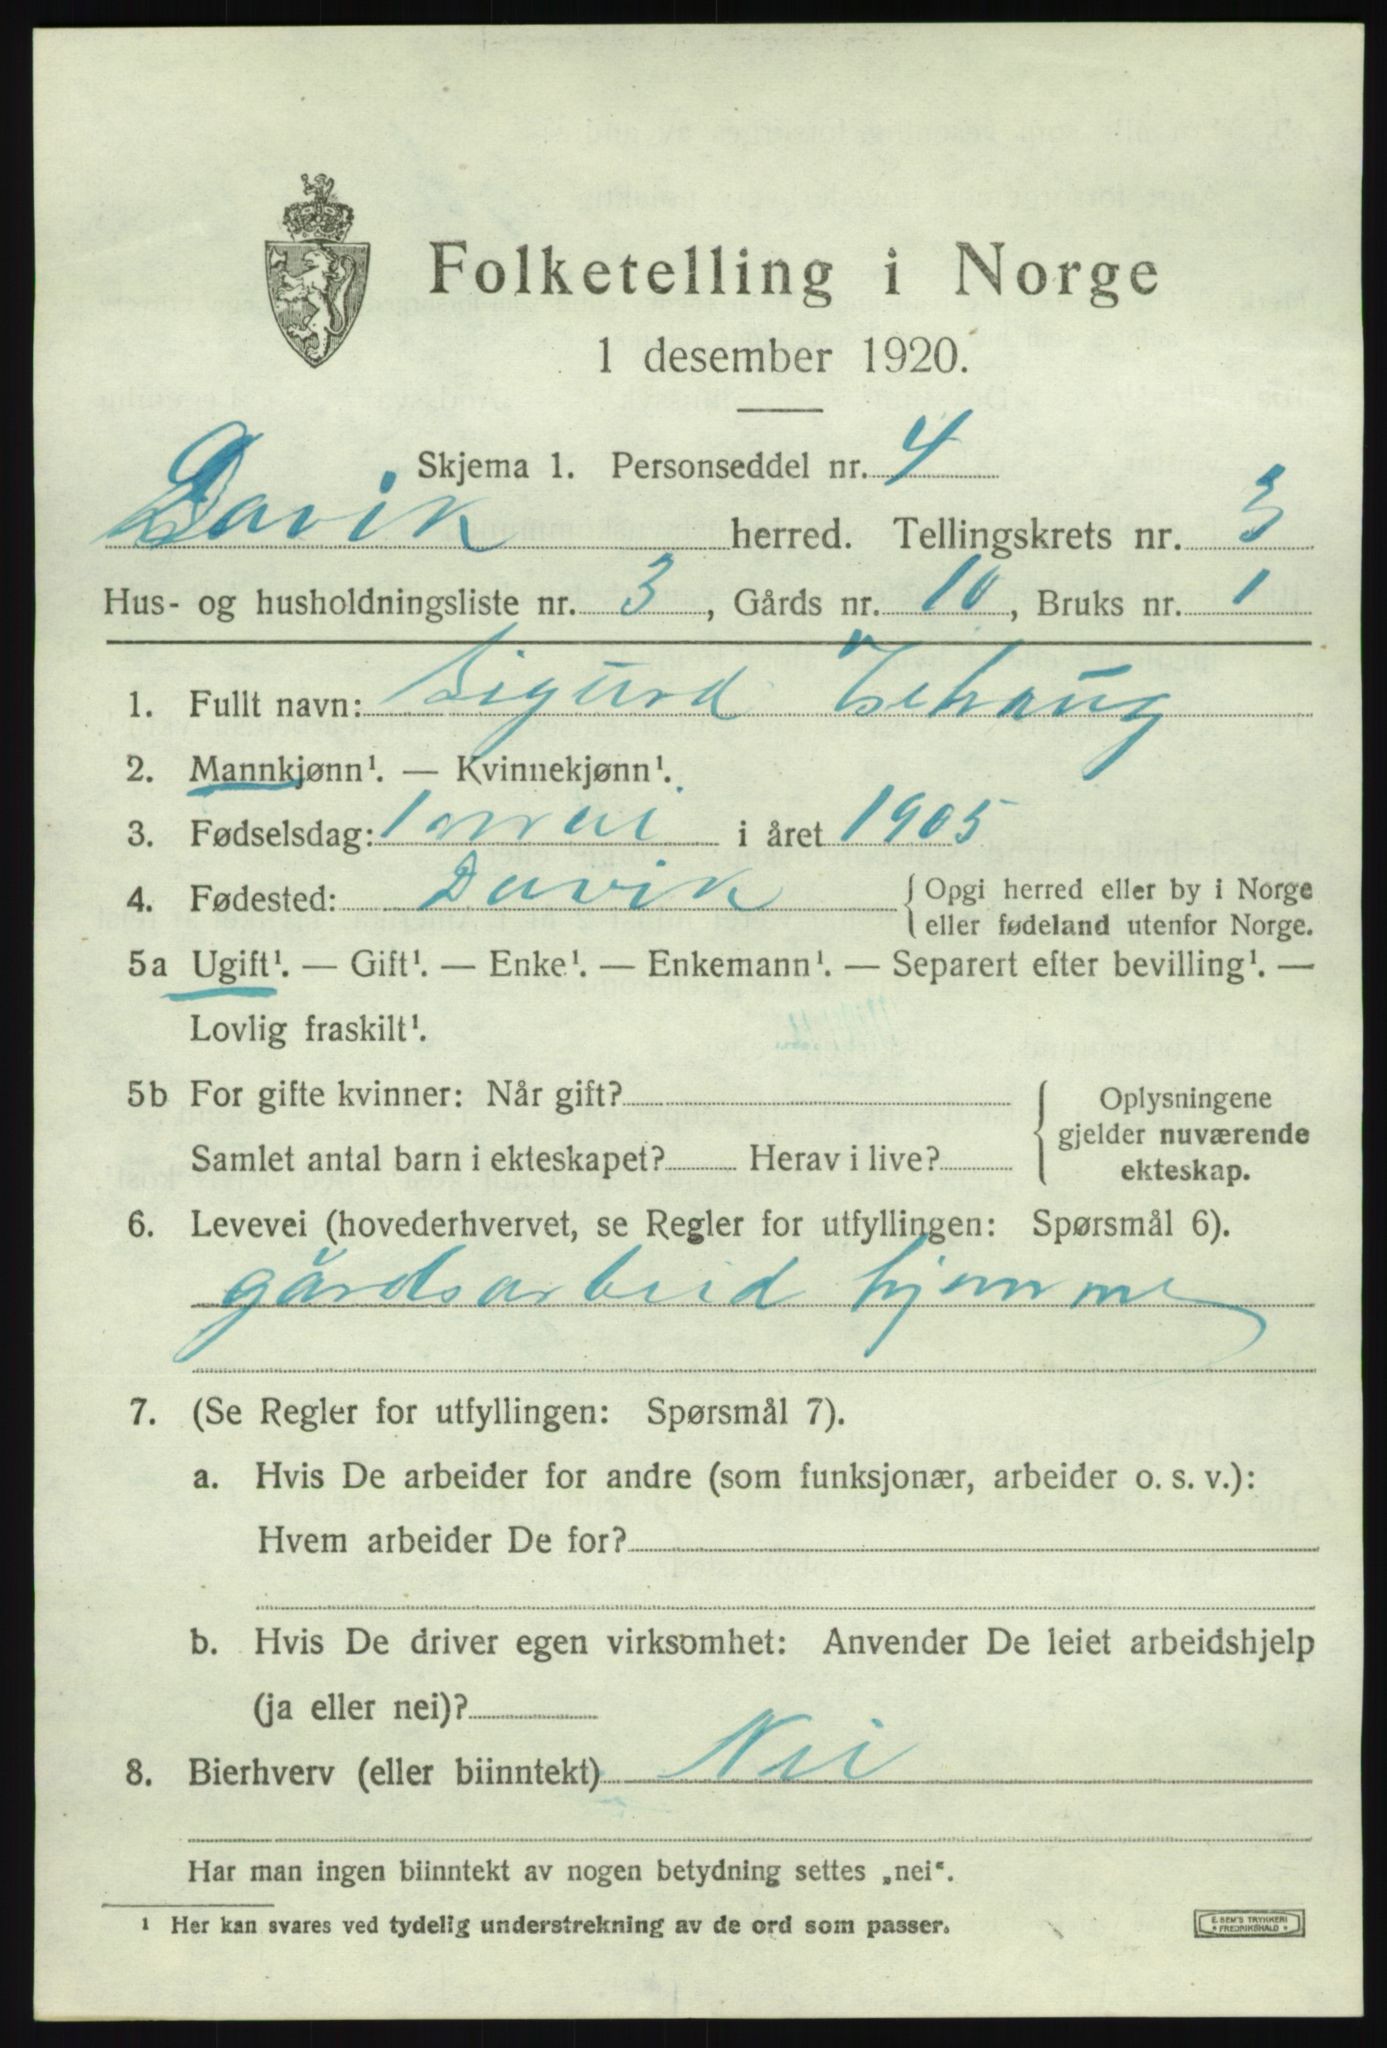 Folketelling i Norge
1 desember 1920.
Skjema 1. Personseddel nr. 4
Davik herred. Tellingskrets nr. 3
Hus- og husholdningsliste nr. 3, Gårds nr. 10, Bruks nr. 1
1. Fullt navn: Sigurd
2. Mannkjønn¹. — Kvinnekjønn¹.
3. Fødselsdag: 1 mai i året 1905
4. Fødested: Davik {Opgi herred eller by i Norge
eller fødeland utenfor Norge.
5a Ugift¹. — Gift¹. — Enke¹. — Enkemann¹. — Separert efter bevilling¹. —
Lovlig fraskilt¹.
5b For gifte kvinner: Når gift?
Samlet antal barn i ekteskapet? Herav i live?
{Oplysningene
gjelder nuværende
ekteskap.
6. Levevei (hovederhvervet, se Regler for utfyllingen: Spørsmål 6).
gårdsarbeid hjemme
7. (Se Regler for utfyllingen: Spørsmål 7).
a. Hvis De arbeider for andre (som funksjonær, arbeider o. s. v.):
Hvem arbeider De for?
b. Hvis De driver egen virksomhet: Anvender De leiet arbeidshjelp
(ja eller nei)?
8. Bierhverv (eller biinntekt) Nei
Har man ingen biinntekt av nogen betydning settes „nei“.
¹ Her kan svares ved tydelig understrekning av de ord som passer.
E. SEM'S TRYKKERI
FREDRIKSHALD